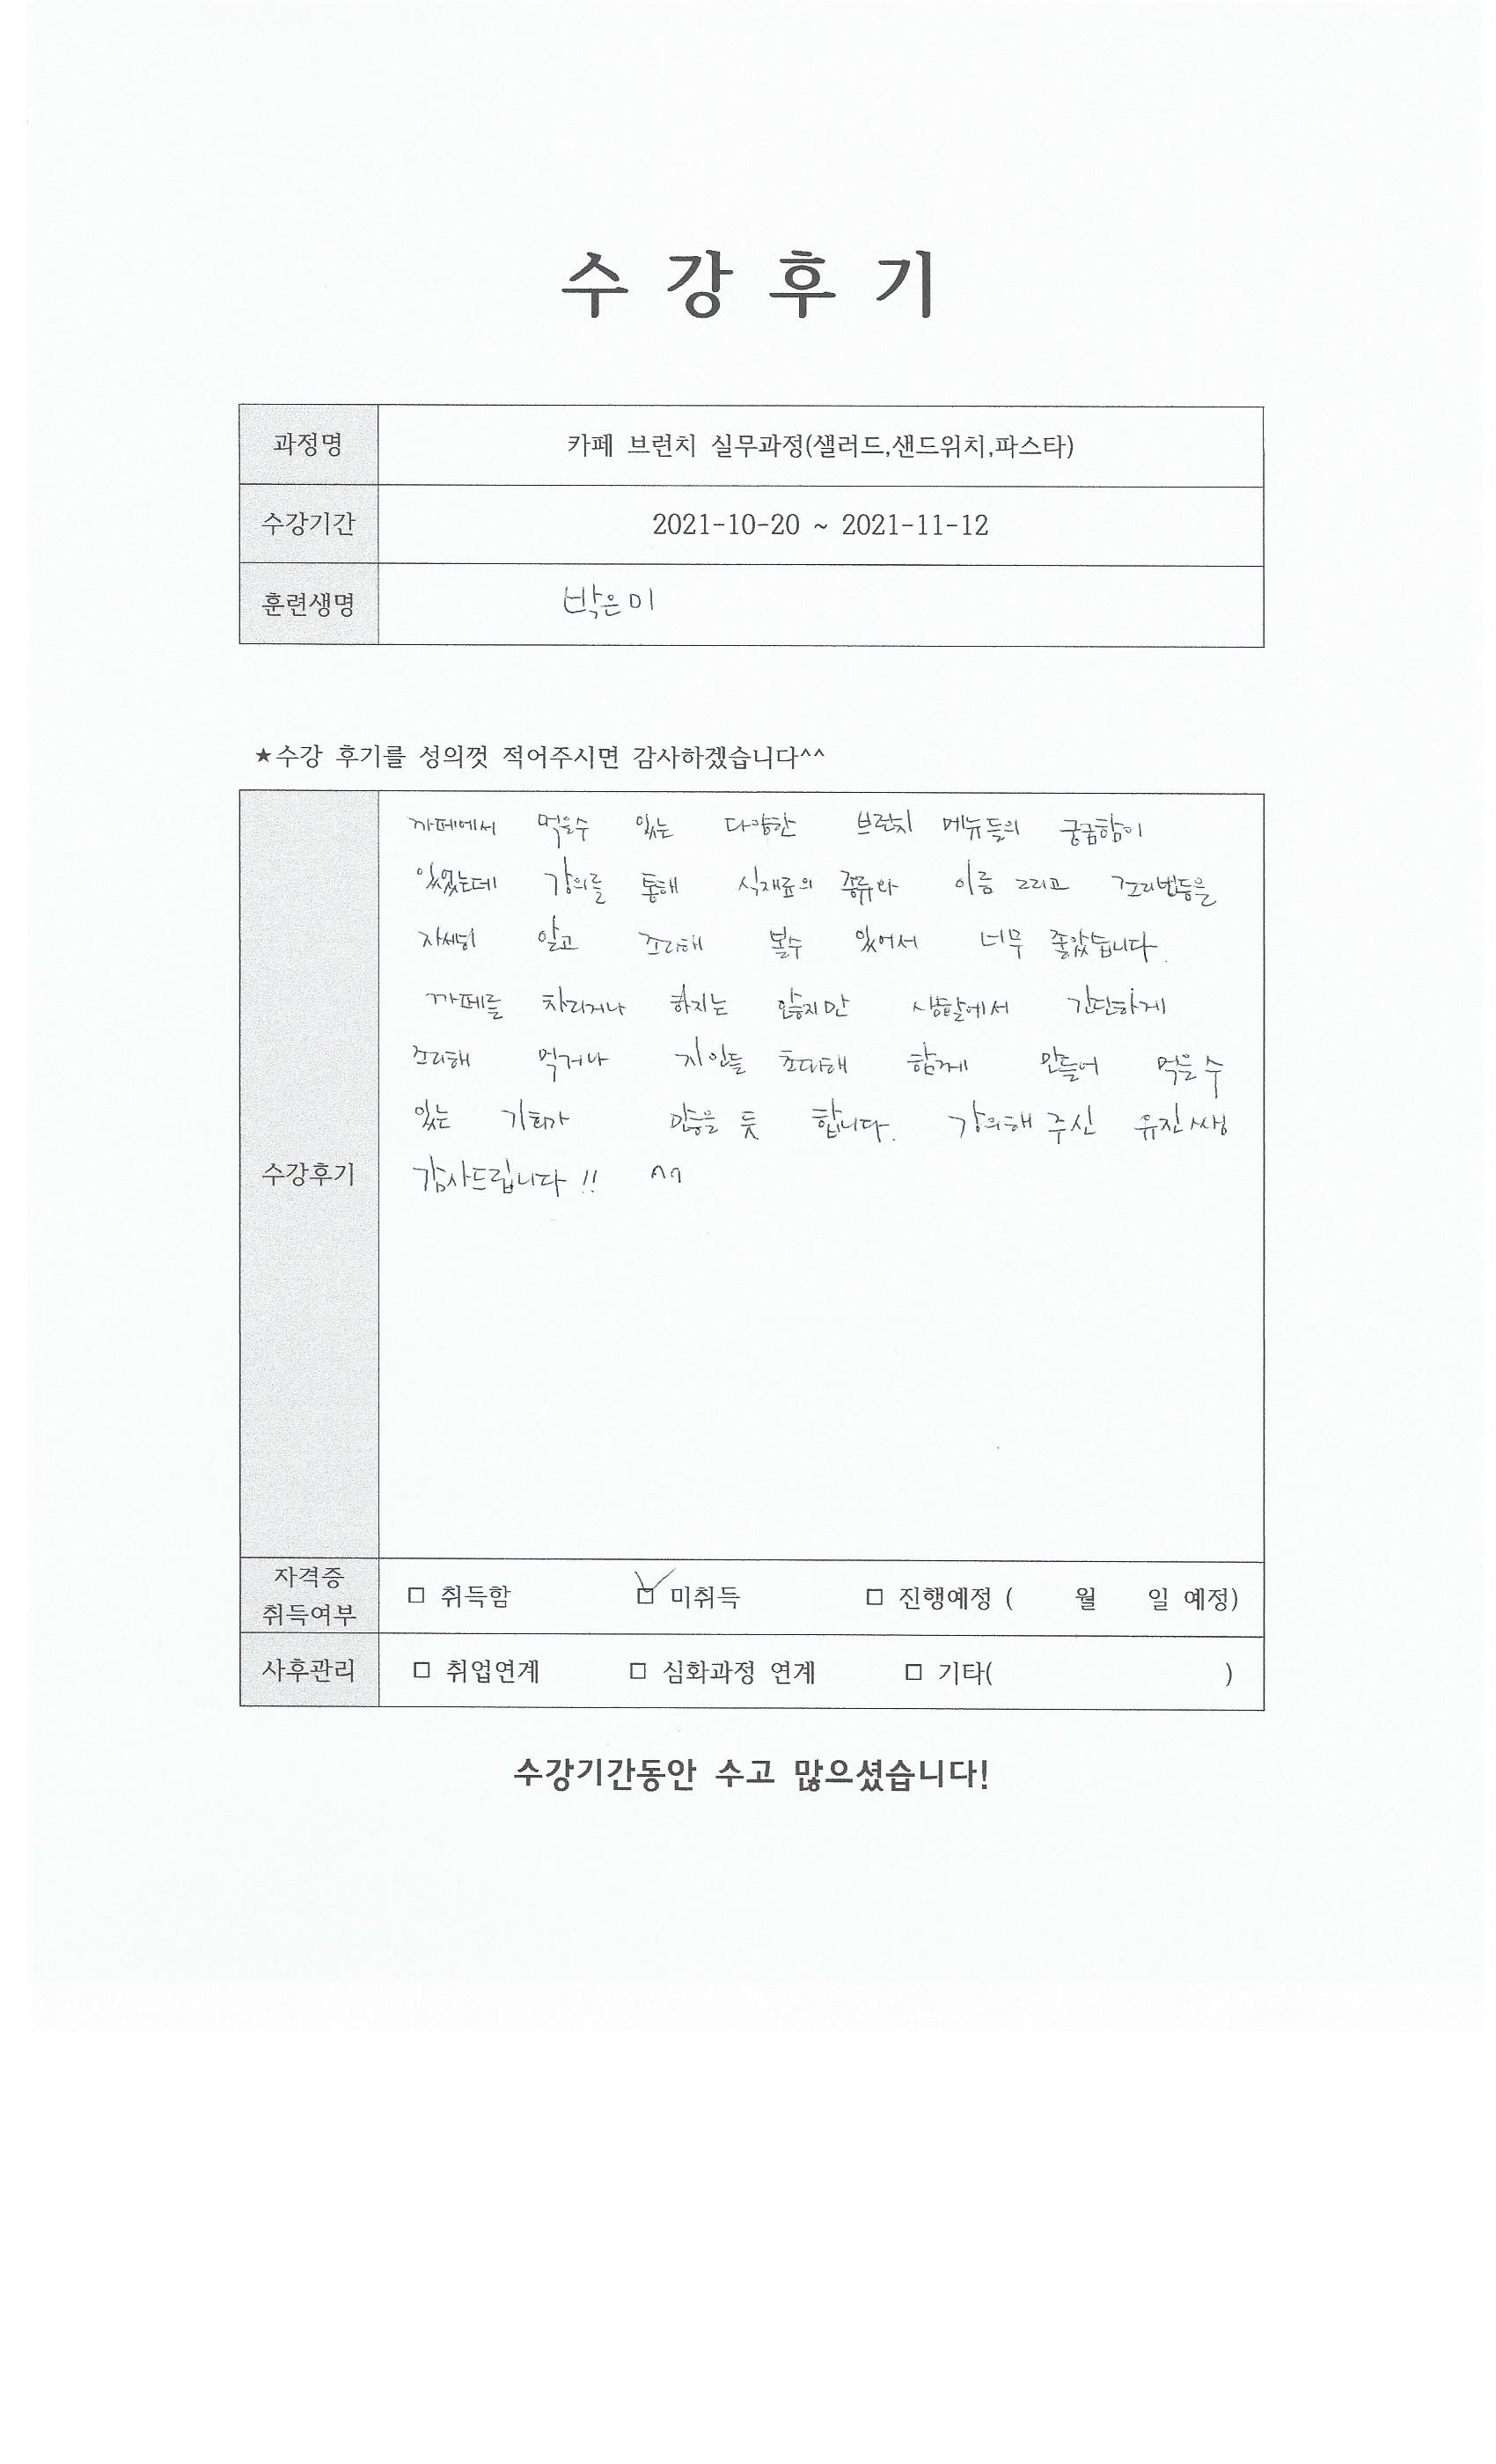 수 강 후 기
과정명 카페 브런치 실무과정(샐러드,샌드위치,파스타)
수강기간 2021-10-20 ~ 2021-11-12
훈련생명 박은미
★수강 후기를 성의껏 적어주시면 감사하겠습니다^^
까페에서 먹을수 있는 다양한 브런치 메뉴들의 궁금함이
있었는데 강의를 통해 식재료의 종류와 이름 그리고 조리법등을
자세히 알고 조리해 볼수 있어서 너무 좋았습니다.
까페를 차리거나 하지는 않지만 에서 간단하게
조리해 먹거나 지인들 초대해 함께 만들어 먹을 수
있는 기회가 많을 듯 합니다. 강의해 주신 유진쌤
수강후기 감사드립니다 !! ^^
자격증
취득여부 □ 취득함 □ 미취득 □ 진행예정 ( 월 일 예정)
사후관리 □ 취업연계 □ 심화과정 연계 □ 기타( )
수강기간동안 수고 많으셨습니다!